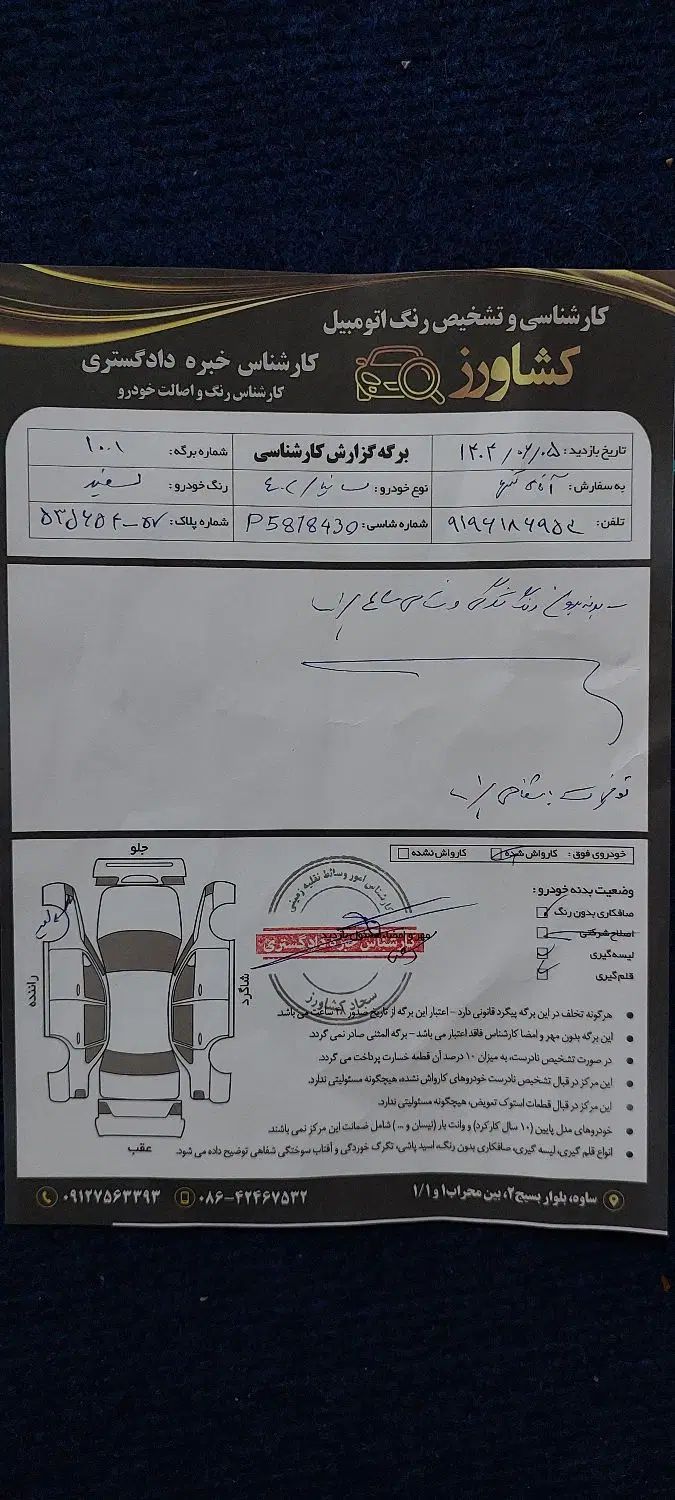 کارشناسی و تشخیص رنگ اتومبیل
کشاورز
کارشناس خبره دادگستری
کارشناس رنگ و اصالت خودرو
تاریخ بازدید: ۱۴۰۴/۰۶/۰۵
برگه گزارش کارشناسی
شماره برگه: ۱۰۰۱
به سفارش: آقای
نوع خودرو:
رنگ خودرو: سفید
تلفن:
شماره شاسی: P5878430
شماره پلاک:
خودروی فوق: کارواش شده کارواش نشده
وضعیت بدنه خودرو:
صافکاری بدون رنگ
اصلاح شرکتی
لیسه گیری
قلم گیری
جلو
راننده
شاگرد
عقب
کارشناس امور وسائط نقلیه زمینی
کارشناس خبره دادگستری
سجاد کشاورز
هرگونه تخلف در این برگه پیگرد قانونی دارد – اعتبار این برگه از تاریخ صدور ۴۸ ساعت می باشد.
این برگه بدون مهر و امضا کارشناس فاقد اعتبار می باشد – برگه المثنی صادر نمی گردد.
در صورت تشخیص نادرست، به میزان ۱۰ درصد آن قطعه خسارت پرداخت می گردد.
این مرکز در قبال تشخیص نادرست خودروهای کارواش نشده، هیچگونه مسئولیتی ندارد.
این مرکز در قبال قطعات استوک تعویض، هیچگونه مسئولیتی ندارد.
خودروهای مدل پایین (۱۰ سال کارکرد) و وانت بار (نیسان و ...) شامل ضمانت این مرکز نمی باشند.
انواع قلم گیری، لیسه گیری، صافکاری بدون رنگ، اسید پاشی، تگرگ خوردگی و آفتاب سوختگی شفاهی توضیح داده می شود.
ساوه، بلوار بسیج ۲، بین محراب ۱ و ۱/۱
۰۸۶-۴۲۴۶۷۵۳۲
۰۹۱۲۷۵۶۳۳۹۳